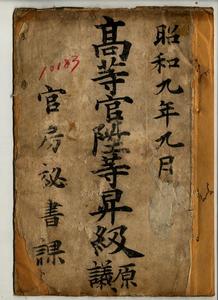 昭和九年九月
高等官陞等昇級
原議
官房祕書課
10183